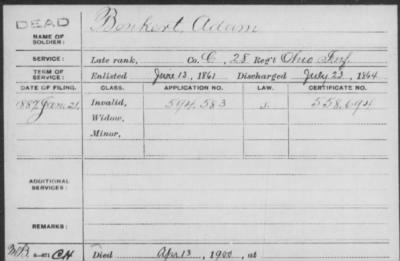 DEAD
NAME OF SOLDIER: Bonkert, Adam
SERVICE: Late rank, Co. C, 28 Reg't Ohio Inf.
TERM OF SERVICE: Enlisted June 13, 1861 Discharged July 23, 1864
DATE OF FILING. CLASS. APPLICATION NO. LAW. CERTIFICATE NO.
1887 Jan. 21, Invalid, 594,583 558,694
Widow,
Minor,
ADDITIONAL SERVICES:
REMARKS:
Died Apr 13, 1900, at